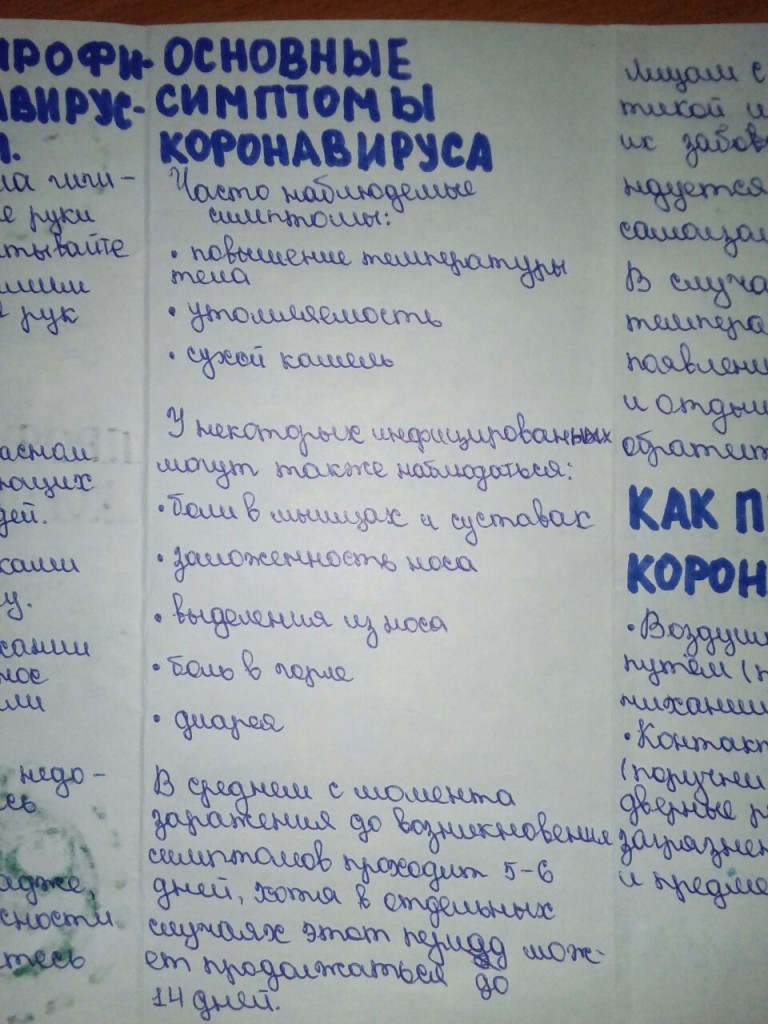 ПРОФИ-
АВИРУС-
И.
ла гиги-
е руки
тывайте
рук
асном
ющих
дей.
ками
у.
сании
нос
ли
недо-
сь
адже,
сности
тесь
ОСНОВНЫЕ
СИМПТОМЫ
КОРОНАВИРУСА
Часто наблюдемые
симптомы:
• повышение температуры
тела
• утомляемость
• сухой кашель
У некоторых инфицированных
могут также наблюдаться:
• боли в мышцах и суставах
• заложенность носа
• выделения из носа
• боль в горле
• диарея
В среднем с момента
заражения до возникновения
симптомов проходит 5-6
дней, хотя в отдельных
случаях этот период мож-
ет продолжаться до
14 дней.
Лицам с
тикой и
их забов
ндуется
самоизол
В случа
темпера
появлени
и отдыш
обратит
КАК П
КОРОН
• Воздуш
путём (п
чихании
• Контакт
(поручни
дверные р
загрязнен
и предме